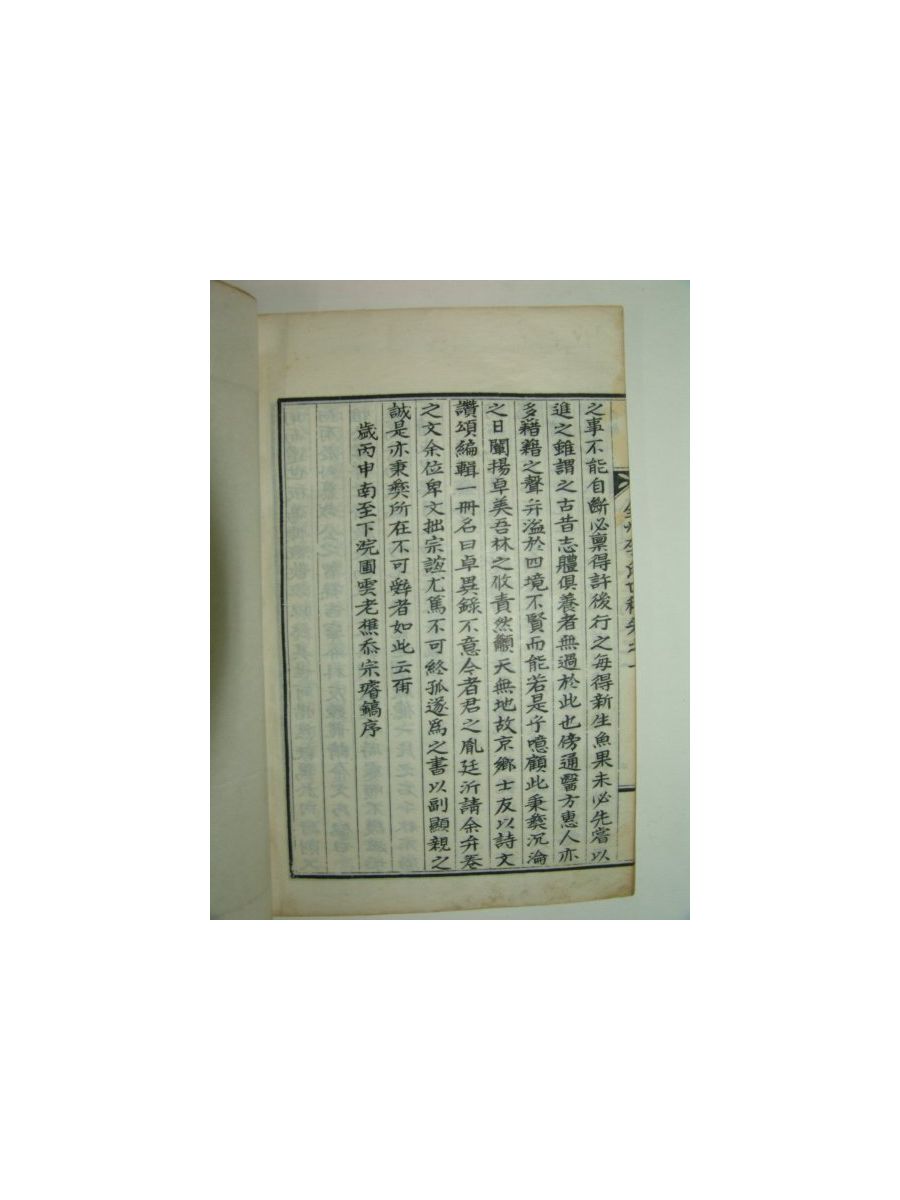 之事不能自斷必稟得許後行之每得新生魚果未必先嘗以
進之雖謂之古昔志軆俱養者無過於此也傍通醫方惠人亦
多藉藉之聲弁溢於四境不賢而能若是乎噫顧此秉彜沉淪
之日闡揚卓美吾林之攸責然顧天無地故京鄉士友以詩文
讚頌編輯一冊名曰卓異錄不意今者君之胤廷沂請余弁卷
之文余位卑文拙宗誼尤篤不可終孤遂爲之書以副顯親之
誠是亦秉彜所在不可辭者如此云甭
歲丙申南至下浣圃雲老樵忝宗璿鎬序